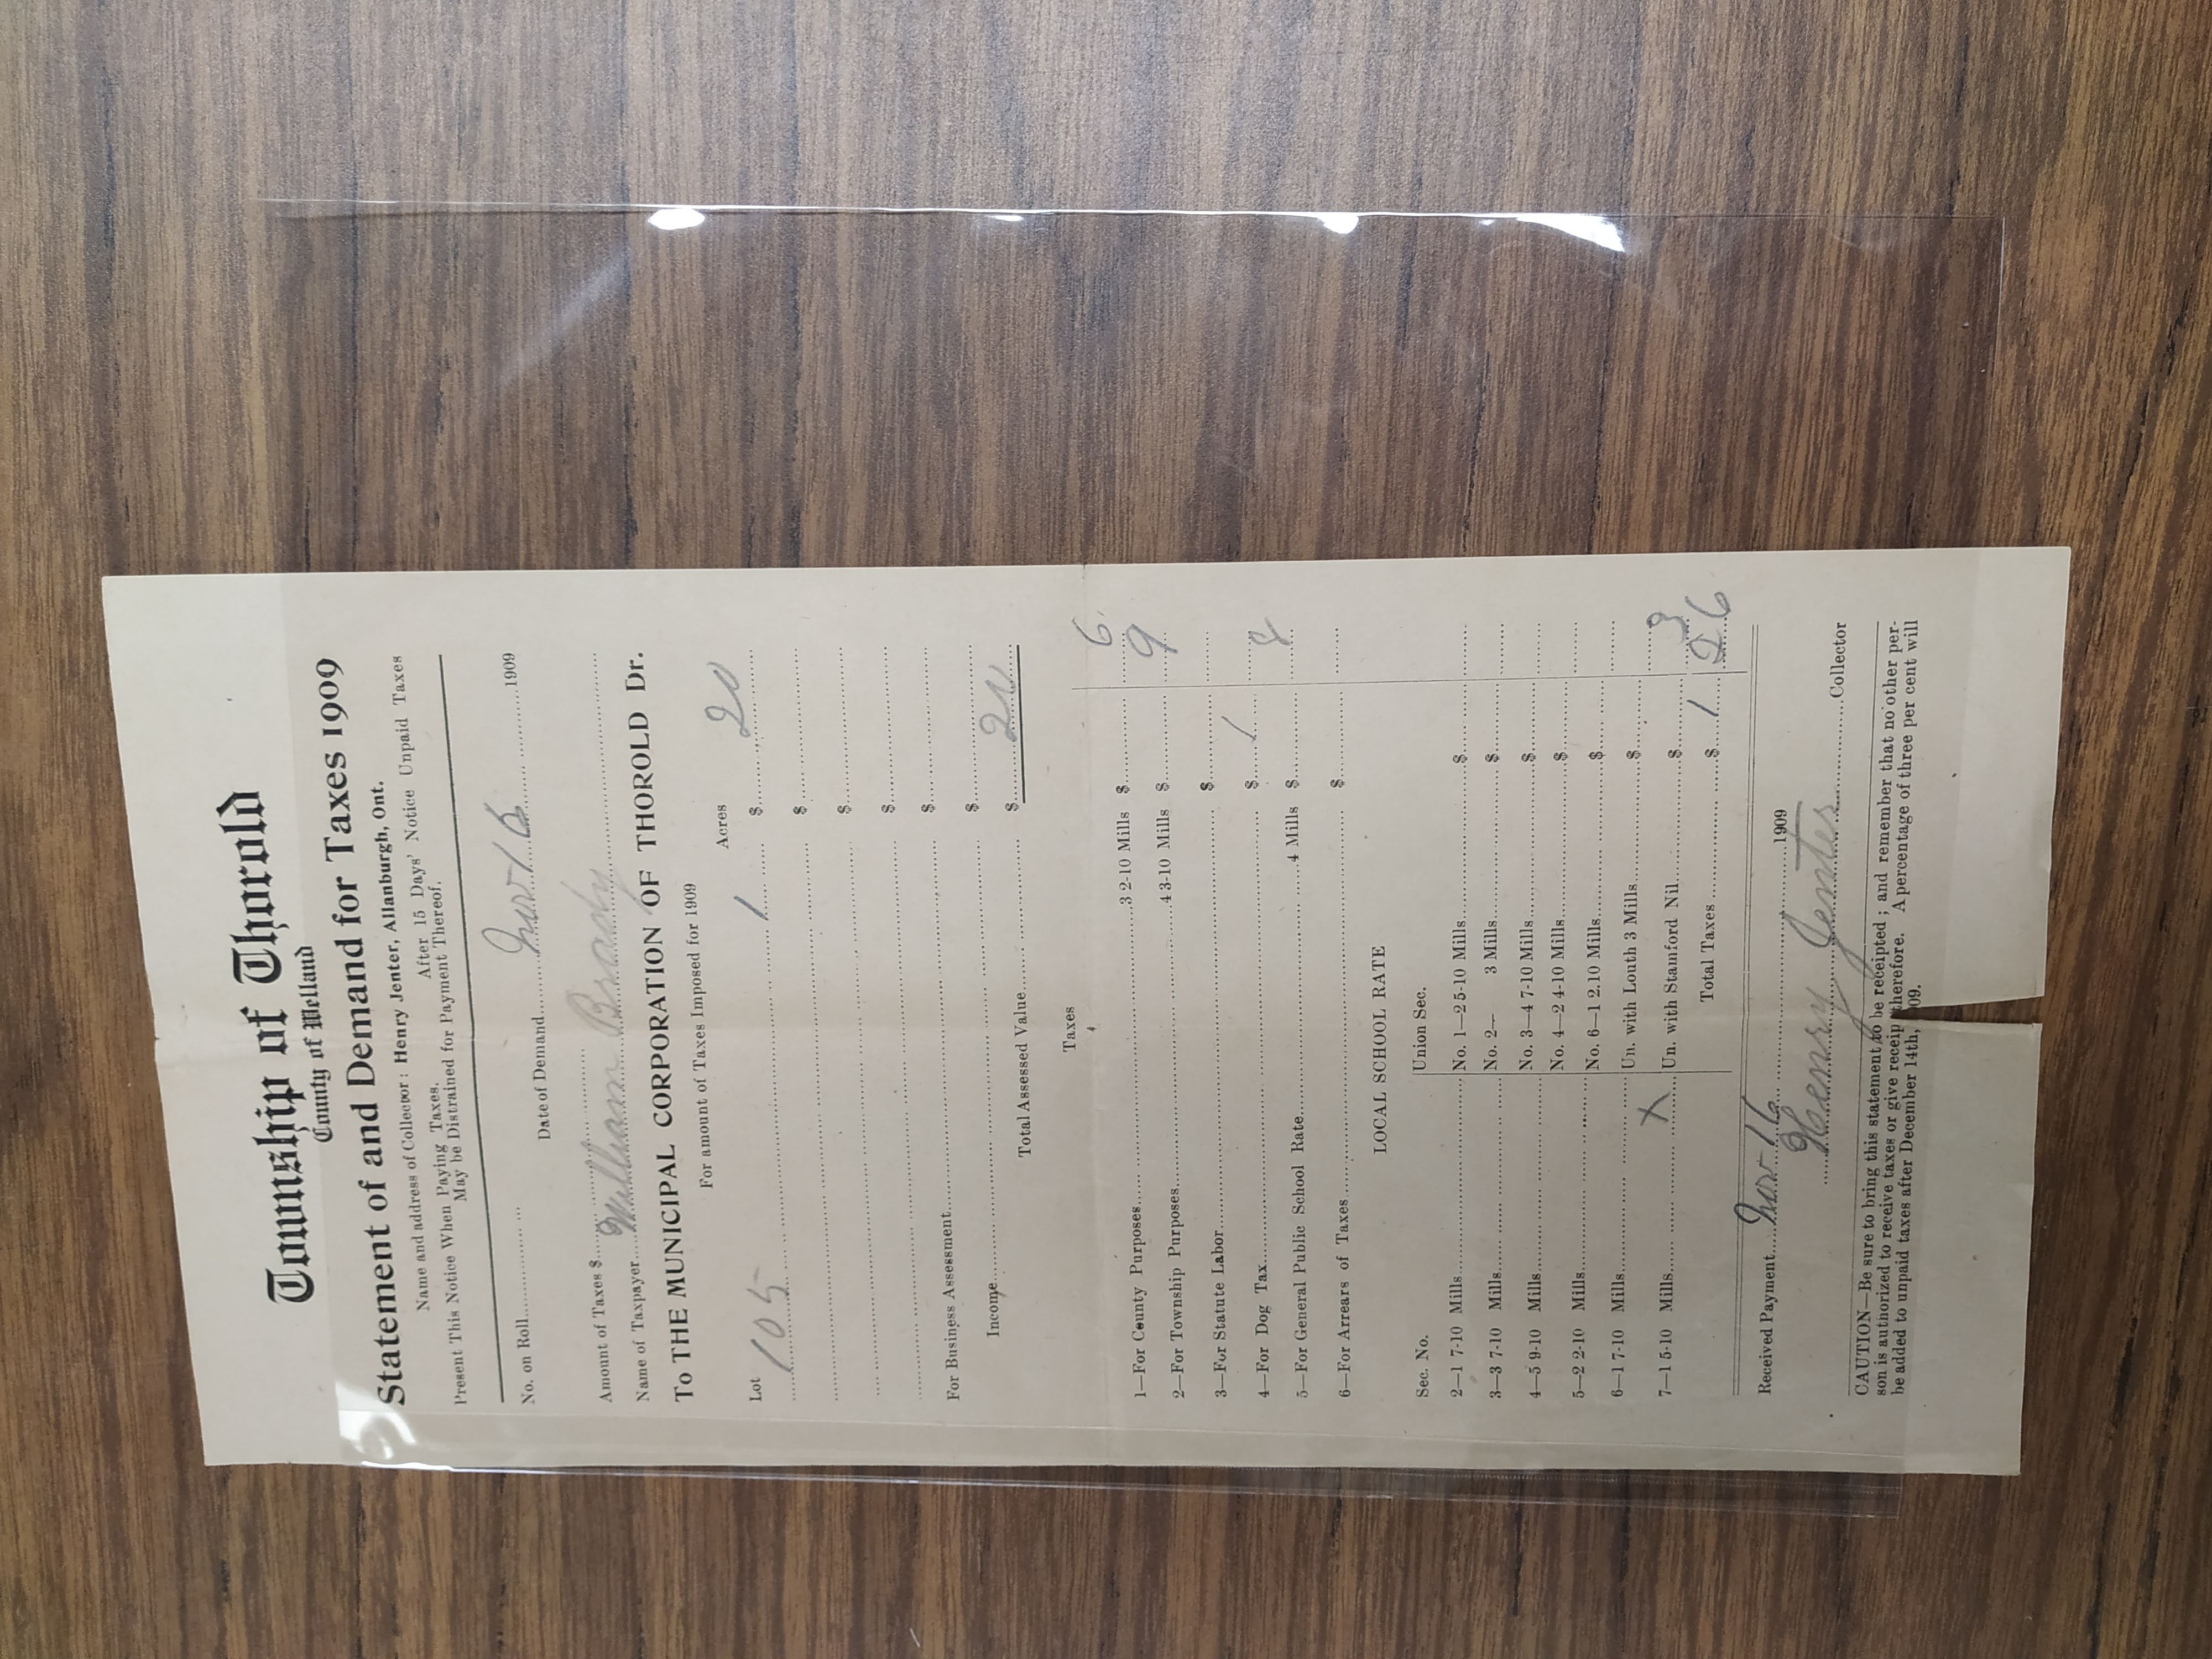 Township of Thorold
County of Welland
Statement of and Demand for Taxes 1909
Name and address of Collector : Henry Jenter, Allanburgh, Ont.
Present This Notice When Paying Taxes. After 15 Days' Notice Unpaid Taxes
May be Distrained for Payment Thereof.
No. on Roll Date of Demand Nov 16 1909
Amount of Taxes $
Name of Taxpayer William Brady
To THE MUNICIPAL CORPORATION OF THOROLD Dr.
For amount of Taxes Imposed for 1909
Acres
Lot 105 1 $ 20
$
$
$
For Business Assessment $
Income $
Total Assessed Value $ 20
Taxes
1—For County Purposes 3 2-10 Mills $ 6
2—For Township Purposes 4 3-10 Mills $ 9
3—For Statute Labor $
4—For Dog Tax $ 1
5—For General Public School Rate 4 Mills $ 8
6—For Arrears of Taxes $
LOCAL SCHOOL RATE
Sec. No. Union Sec.
2—1 7-10 Mills No. 1—2 5-10 Mills $
3—3 7-10 Mills No. 2— 3 Mills $
4—5 9-10 Mills No. 3—4 7-10 Mills $
5—2 2-10 Mills No. 4—2 4-10 Mills $
6—1 7-10 Mills No. 6—1 2.10 Mills $
Un. with Louth 3 Mills $
7—1 5-10 Mills X Un. with Stamford Nil $ 3
Total Taxes $ 1 26
Received Payment Nov 16 1909
Henry Jenter Collector
CAUTION—Be sure to bring this statement to be receipted ; and remember that no other per-
son is authorized to receive taxes or give receip therefore. A percentage of three per cent will
be added to unpaid taxes after December 14th, 09.